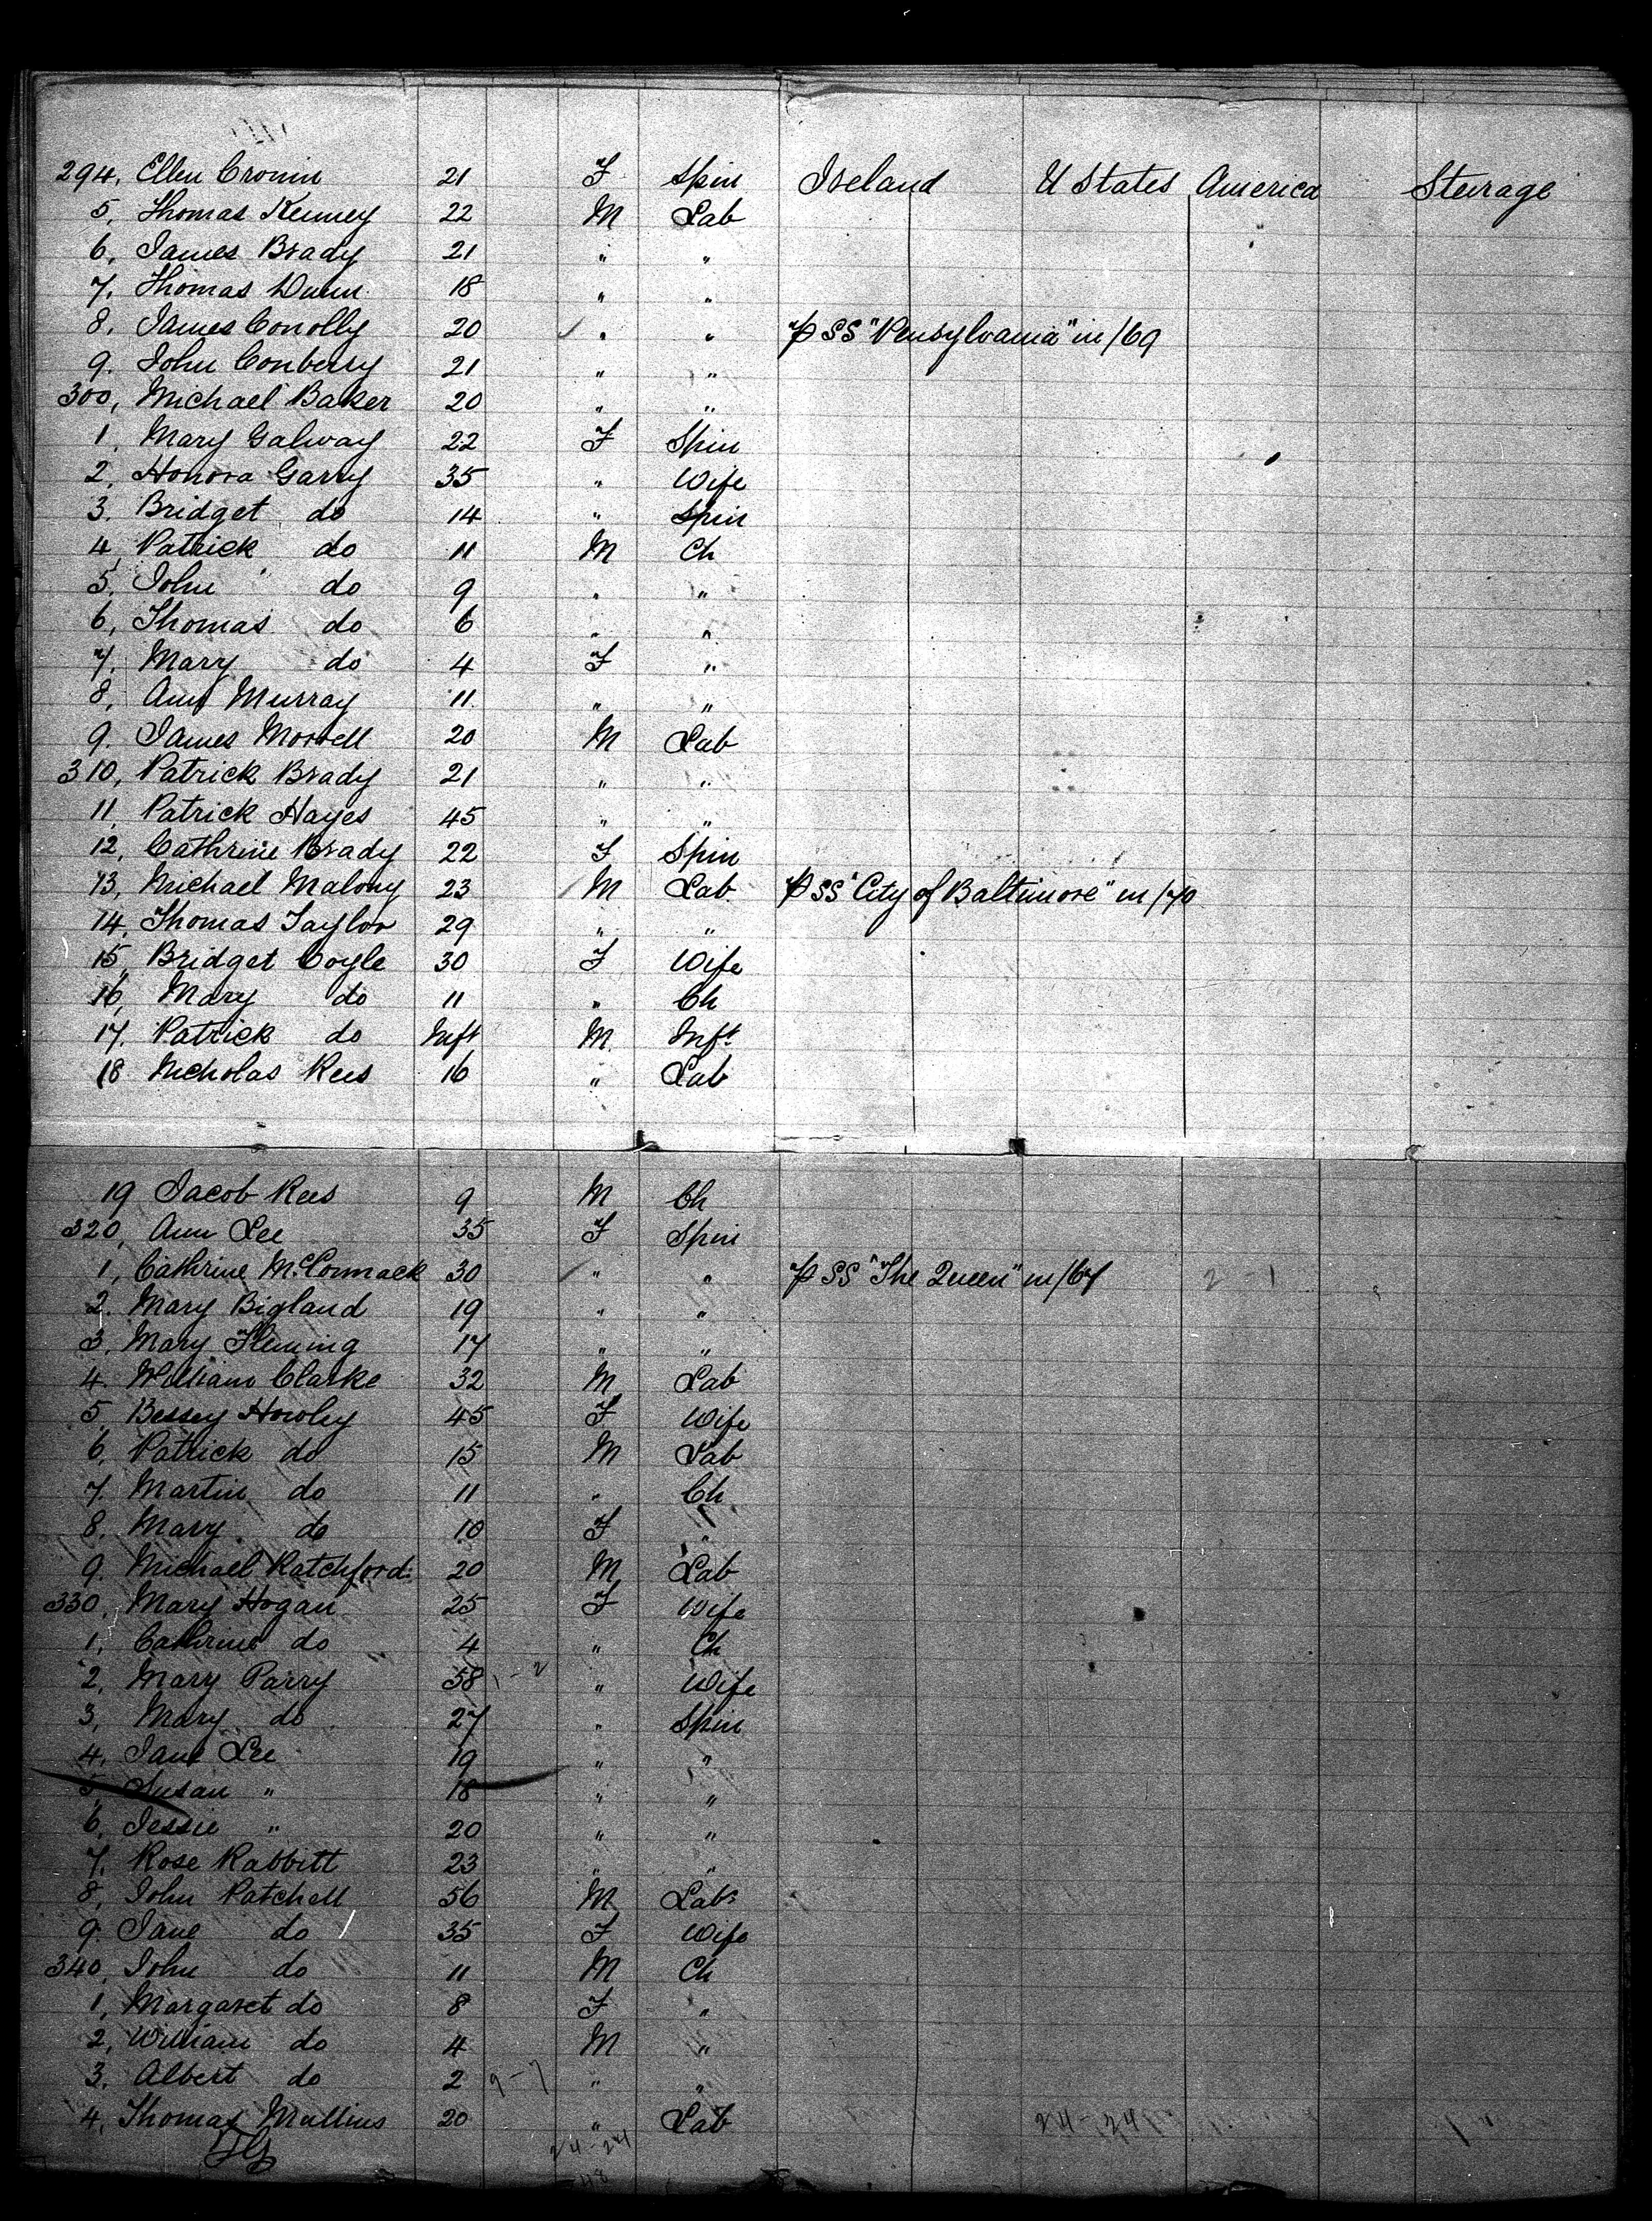 294, Ellen Cronin 21 F Spin Ireland U States America Steerage
5, Thomas Kenney 22 M Lab
6, James Brady 21 " "
7, Thomas Dunn 18 " "
8, James Conolly 20 " " p SS "Pensylvania" in /69
9, John Conberry 21 " "
300, Michael Baker 20 " "
1, Mary Galway 22 F Spin
2, Honora Garry 35 " Wife
3, Bridget do 14 " Spin
4, Patrick do 11 M Ch
5, John do 9 " "
6, Thomas do 6 " "
7, Mary do 4 F "
8, Ann Murray 11 " "
9, James Morrell 20 M Lab
310, Patrick Brady 21 " "
11, Patrick Hayes 45 " "
12, Cathrine Brady 22 F Spin
13, Michael Malony 23 M Lab p SS "City of Baltimore" in /70
14, Thomas Taylor 29 " "
15, Bridget Coyle 30 F Wife
16, Mary do 11 " Ch
17, Patrick do Inft M Inft
18 Nicholas Rees 16 " Lab
19 Jacob Rees 9 M Ch
320, Ann Lee 35 F Spin
1, Cathrine McCormack 30 " " p SS "The Queen" in /67 2-1
2, Mary Bigland 19 " "
3, Mary Fleming 17 " "
4, William Clarke 32 M Lab
5, Bessey Howley 45 F Wife
6, Patrick do 15 M Lab
7, Martin do 11 " Ch
8, Mary do 10 F "
9, Michael Ratchford 20 M Lab
330, Mary Hogan 25 F Wife
1, Cathrine do 4 " Ch
2, Mary Parry 58 1-2 " Wife
3, Mary do 27 " Spin
4, Jane Lee 19 " "
5, Susan " 18 " "
6, Jessie " 20 " "
7, Rose Rabbitt 23 " "
8, John Patchell 56 M Lab
9, Jane do 35 F Wife
340, John do 11 M Ch
1, Margaret do 8 F "
2, William do 4 M "
3, Albert do 2 9-7 " "
4, Thomas Mullins 20 " Lab 24-24
24-24
48